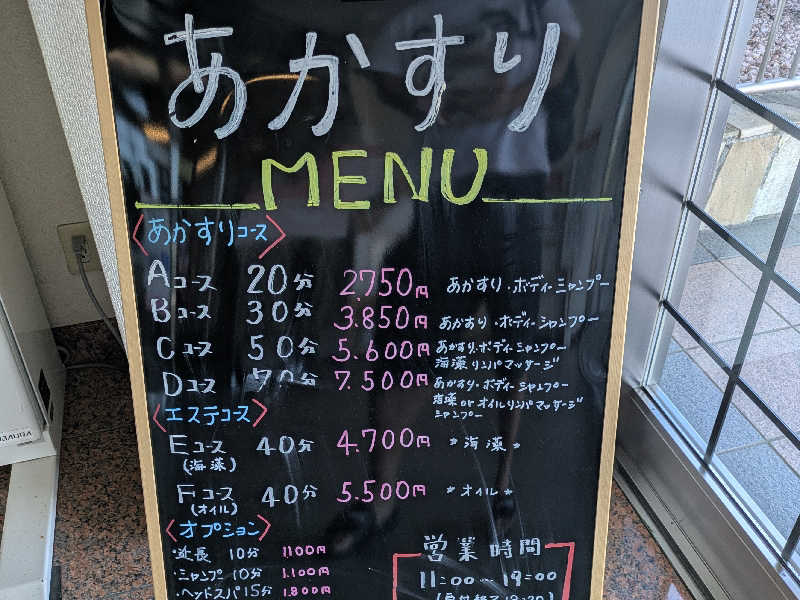 あかすり
MENU
〈あかすりコース〉
Aコース 20分 2,750円 あかすり・ボディーシャンプー
Bコース 30分 3.850円 あかすり・ボディーシャンプー
Cコース 50分 5.600円 あかすり・ボディーシャンプー
海藻リンパマッサージ
Dコース 70分 7.500円 あかすり・ボディーシャンプー
海藻orオイルリンパマッサージ
シャンプー
〈エステコース〉
Eコース 40分 4.700円 *海藻*
(海藻)
Fコース 40分 5.500円 *オイル*
(オイル)
〈オプション〉
・延長 10分 1100円
・シャンプ 10分 1.100円
・ヘッドスパ 15分 1.800円
営業時間
11:00~19:00